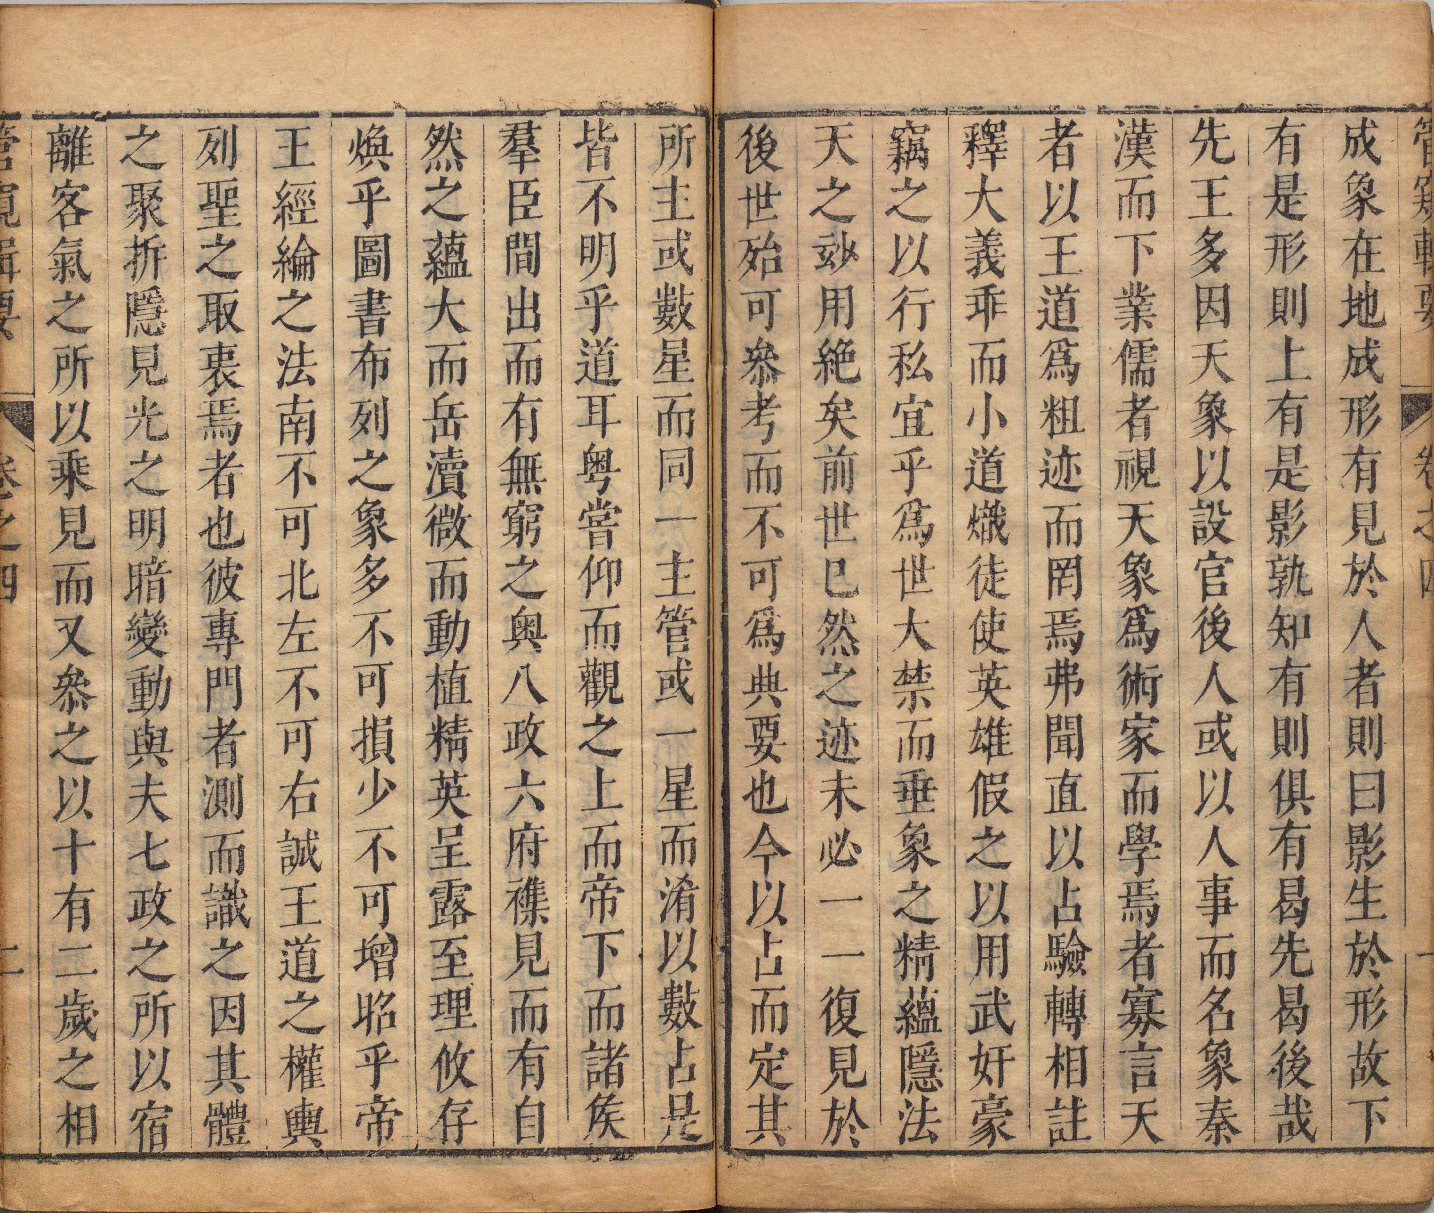 管窺輯要 卷之四 一
成象在地成形有見於人者則曰影生於形故下
有是形則上有是影孰知有則俱有曷先曷後哉
先王多因天象以設官後人或以人事而名象秦
漢而下業儒者視天象爲術家而學焉者寡言天
者以王道爲粗迹而罔焉弗聞直以占驗轉相註
釋大義乖而小道熾徒使英雄假之以用武奸豪
竊之以行私宜乎爲世大禁而垂象之精蘊隱法
天之妙用絶矣前世已然之迹未必一一復見於
後世殆可叅考而不可爲典要也今以占而定其
所主或數星而同一主管或一星而淆以數占是
皆不明乎道耳粤嘗仰而觀之上而帝下而諸矦
羣臣間出而有無窮之奥八政六府襍見而有自
然之蘊大而岳瀆微而動植精英呈露至理攸存
煥乎圖書布列之象多不可損少不可增昭乎帝
王經綸之法南不可北左不可右誠王道之權輿
列聖之取衷焉者也彼專門者測而識之因其體
之聚拆隱見光之明暗變動與夫七政之所以宿
離客氣之所以乘見而又叅之以十有二歲之相
管窺輯要 卷之四 二